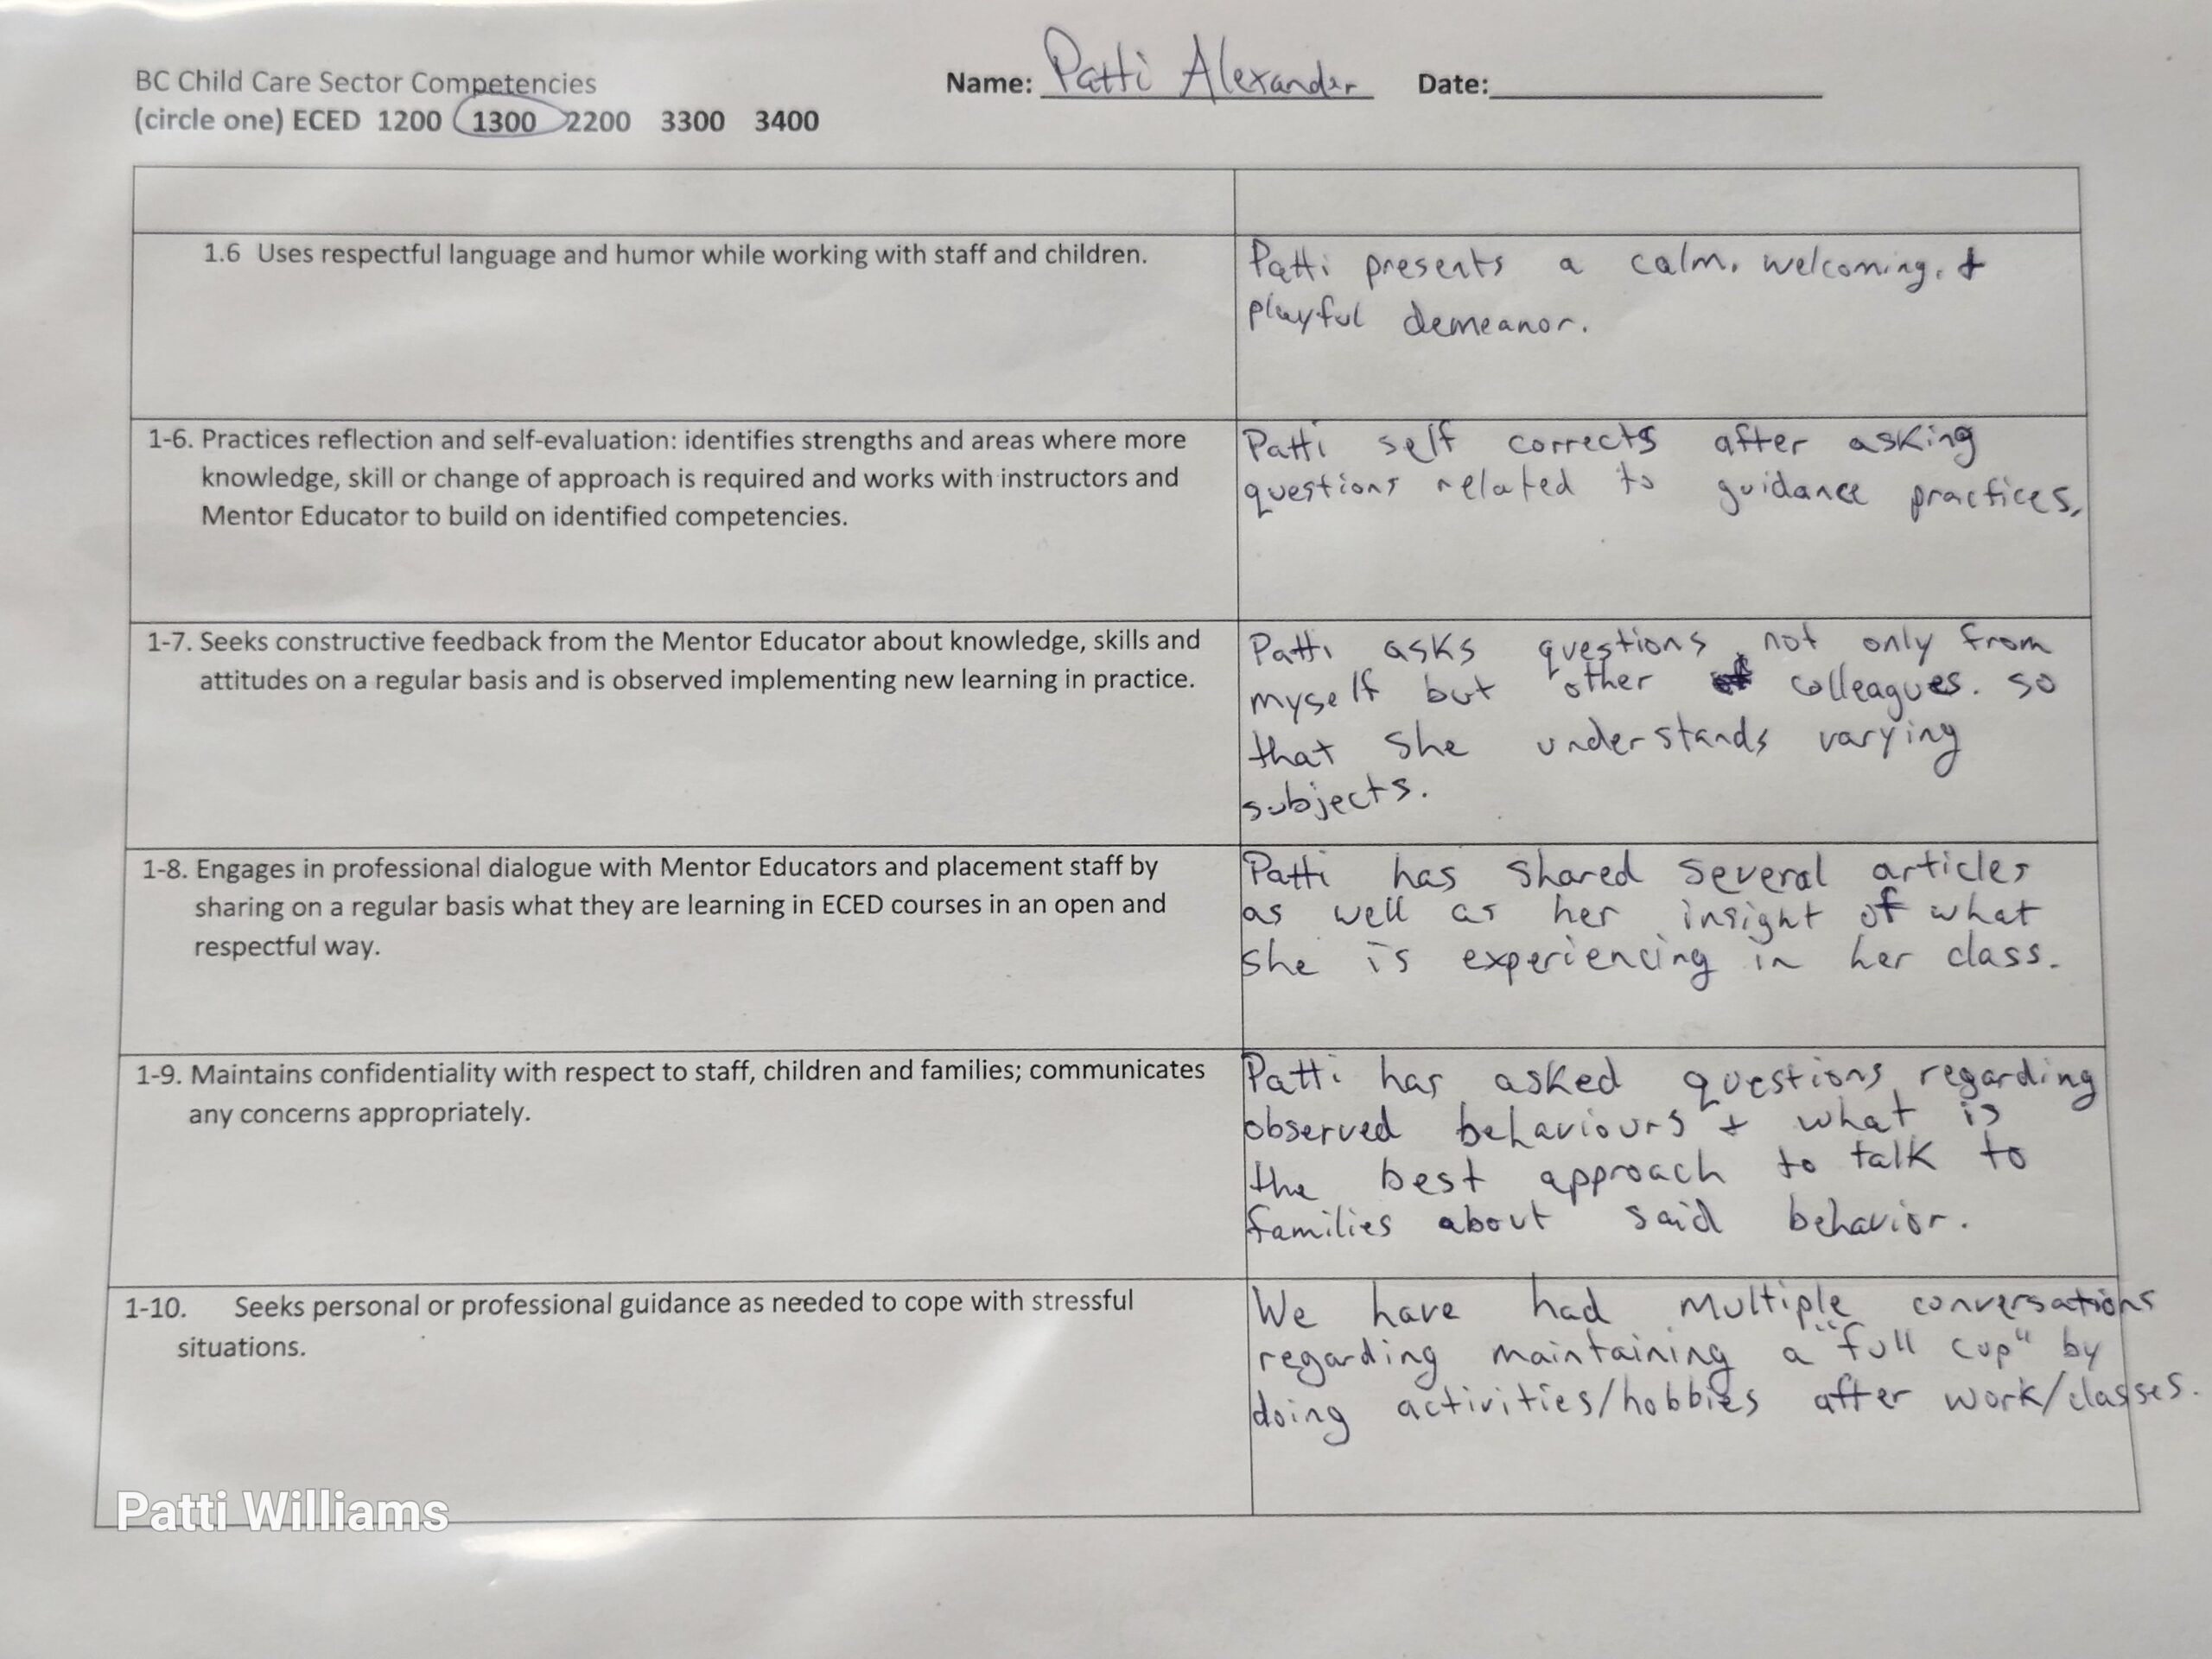 BC Child Care Sector Competencies
Name: Patti Alexander Date:
(circle one) ECED 1200 1300 2200 3300 3400
1.6 Uses respectful language and humor while working with staff and children.
Patti presents a calm, welcoming, +
playful demeanor.
1-6. Practices reflection and self-evaluation: identifies strengths and areas where more
knowledge, skill or change of approach is required and works with instructors and
Mentor Educator to build on identified competencies.
Patti self corrects after asking
questions related to guidance practices,
1-7. Seeks constructive feedback from the Mentor Educator about knowledge, skills and
attitudes on a regular basis and is observed implementing new learning in practice.
Patti asks questions, not only from
myself but other colleagues. so
that she understands varying
subjects.
1-8. Engages in professional dialogue with Mentor Educators and placement staff by
sharing on a regular basis what they are learning in ECED courses in an open and
respectful way.
Patti has shared several articles
as well as her insight of what
she is experiencing in her class.
1-9. Maintains confidentiality with respect to staff, children and families; communicates
any concerns appropriately.
Patti has asked questions regarding
observed behaviours + what is
the best approach to talk to
families about said behavior.
1-10. Seeks personal or professional guidance as needed to cope with stressful
situations.
We have had multiple conversations
regarding maintaining a "full cup" by
doing activities/hobbies after work/classes.
Patti Williams